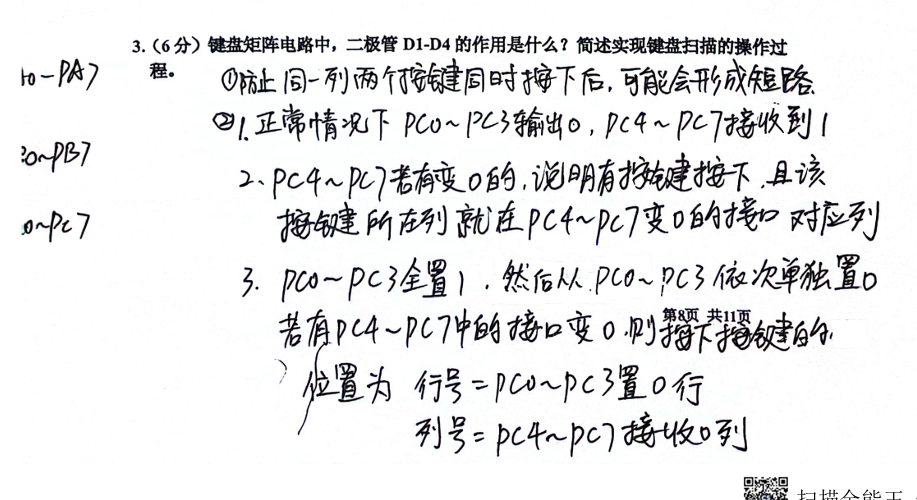 3.（6分）键盘矩阵电路中，二极管 D1-D4 的作用是什么？简述实现键盘扫描的操作过
程。
~PA7
①防止同一列两个按键同时按下后，可能会形成短路
②1. 正常情况下 PC0~PC3输出0，PC4~PC7接收到1
~PB7
2、PC4~PC7若有变0的，说明有按键按下，且该
按键所在列就在PC4~PC7变0的接口对应列
~PC7
3. PC0~PC3全置1，然后从PC0~PC3依次单独置0
第8页 共11页
若有PC4~PC7中的接口变0，则按下按键的
位置为 行号=PC0~PC3置0行
列号=PC4~PC7接收0列
扫描全能王